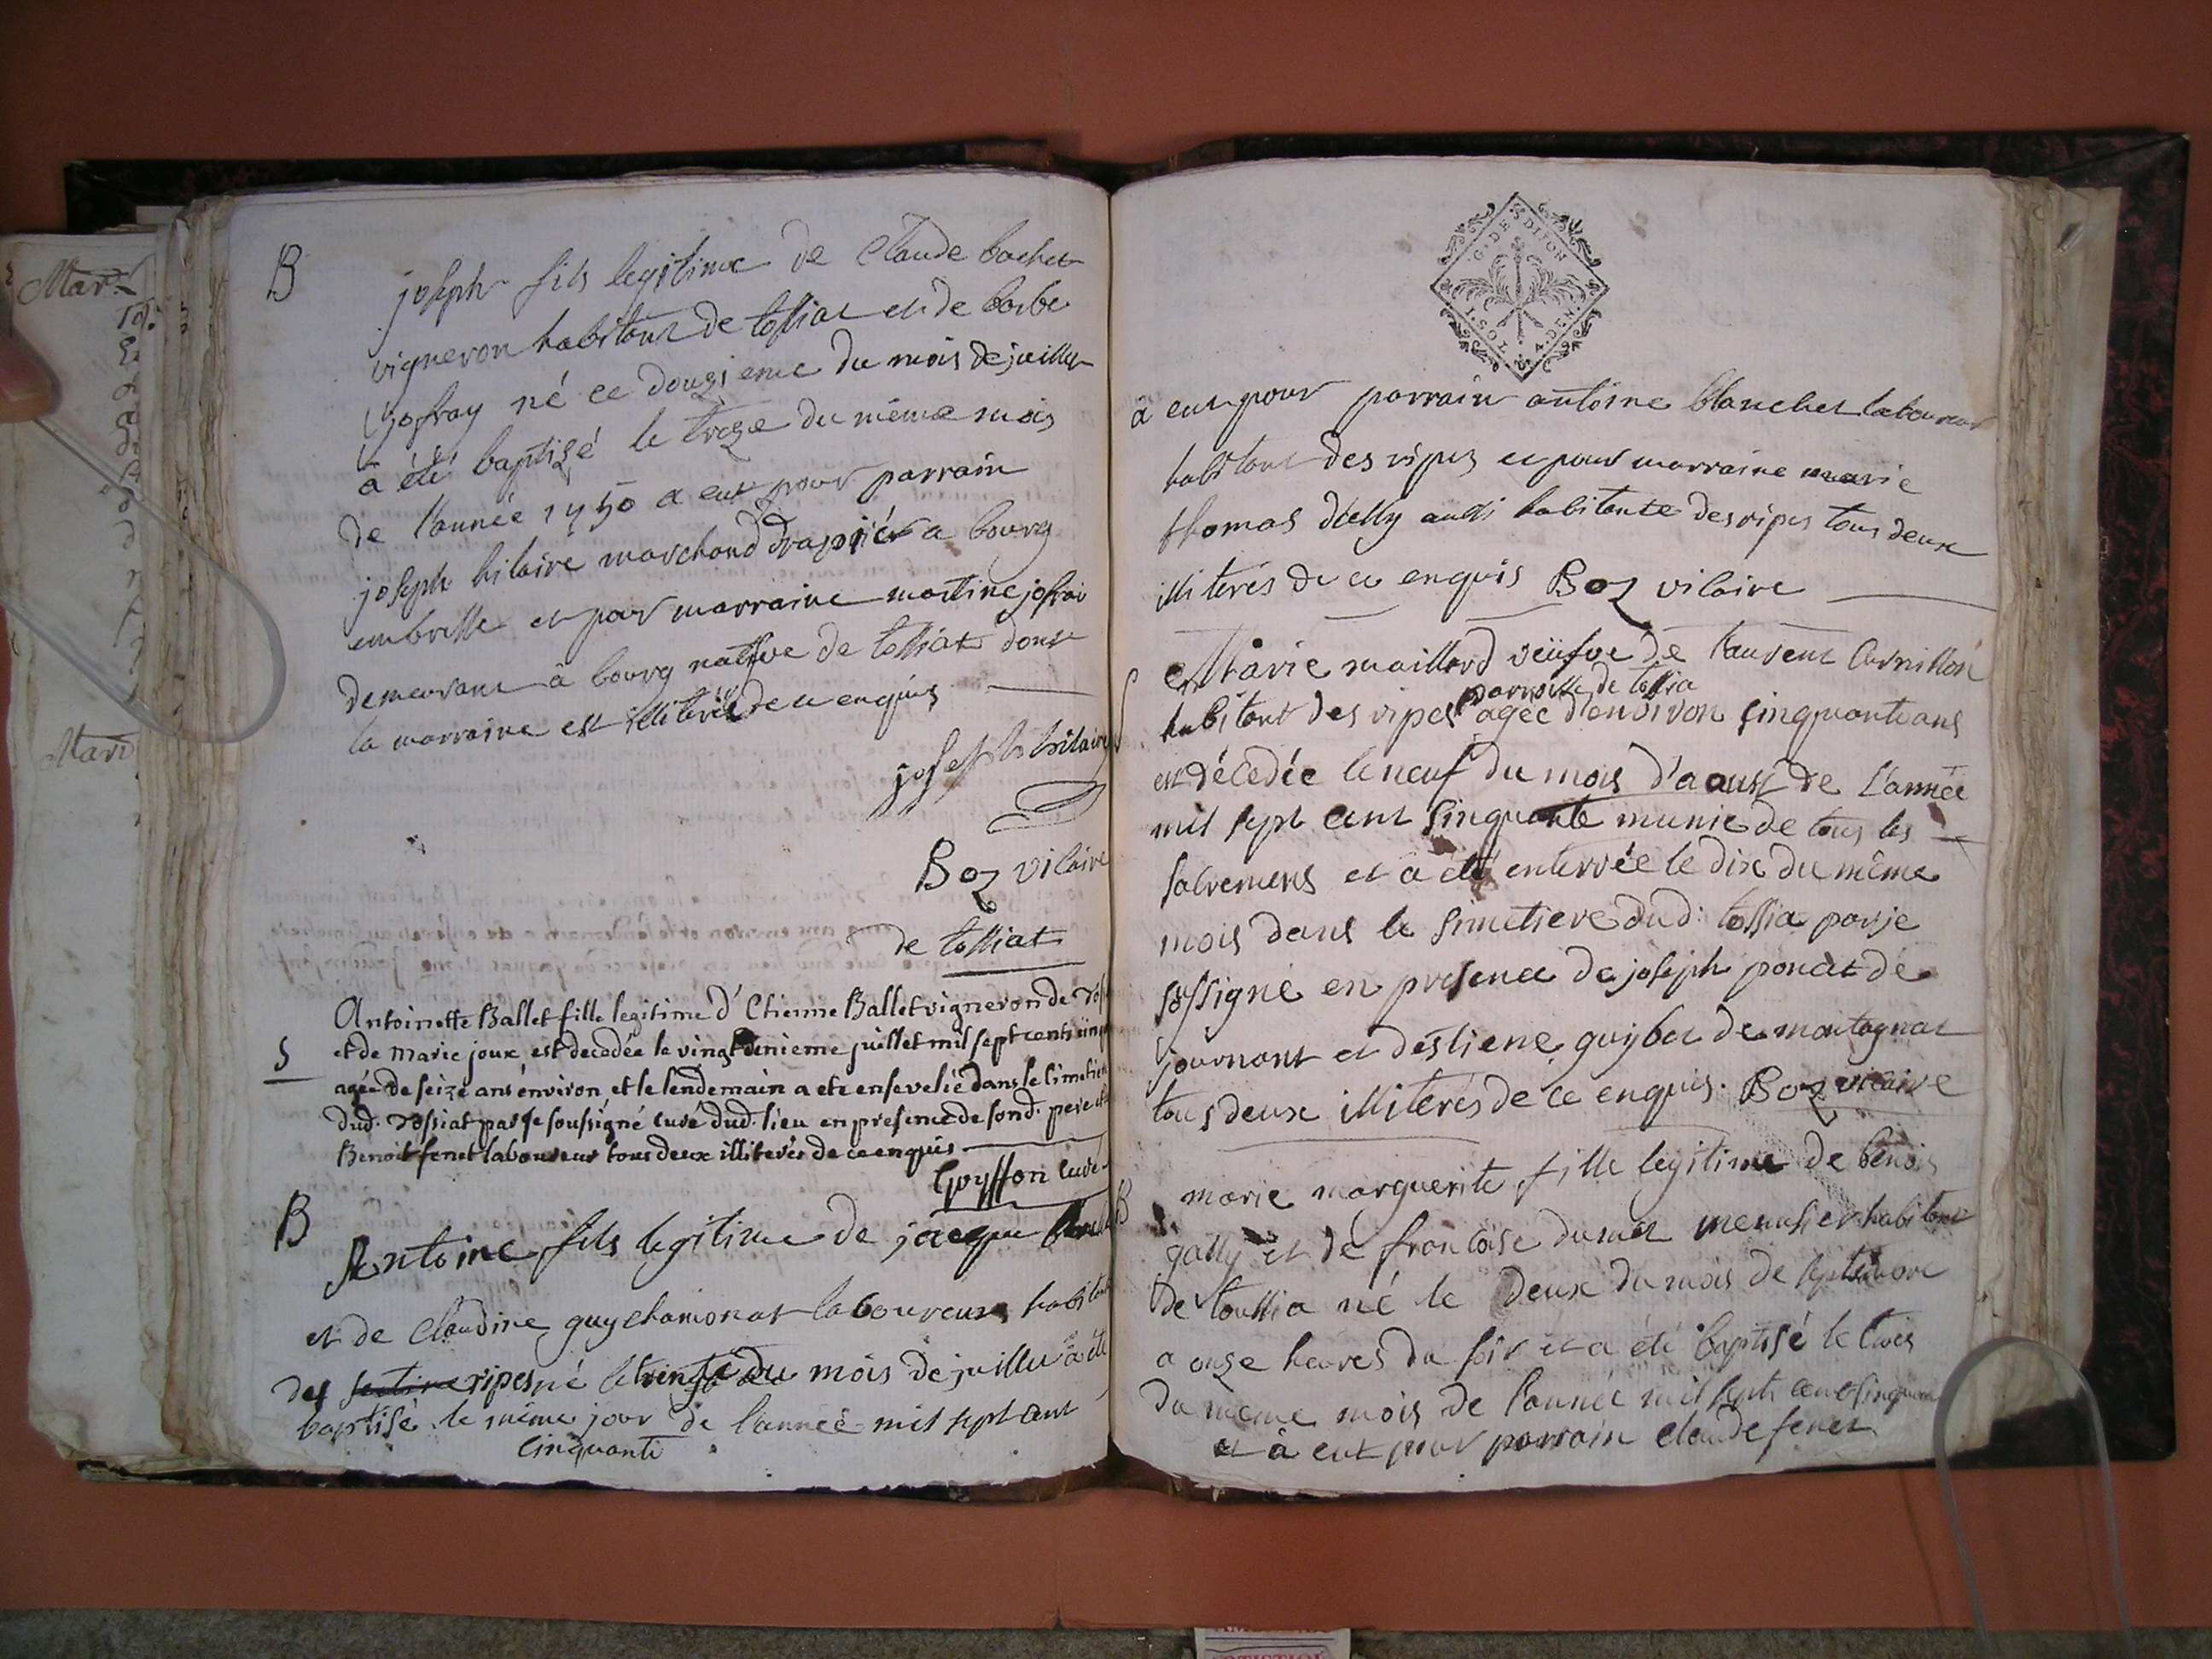 B
joseph fils legitime de Claude bachet
vigneron habitant de tossiat et de barbe
jofray né ce douzieme du mois de juillet
a été baptizé le treze du même mois
de l'année 1750 a eut pour parrain
joseph hilaire marchand drappiér a bourg
en bresse et pour marraine martine jofrai
demeurant â bourg natifve de tossiat dont
la marraine est illiterée de ce enquis
joseph hilaire
Boz vicaire
de tossiat
Antoinette Ballet fille legitime d'Etienne Ballet vigneron de
S
et de Marie joux est decedée le vingt unieme juillet mil sept cents
agée de seize ans énviron et le lendemain a ete ensevelie dans le
dud. Tossiat par je soussigné curé dud. lieu en presence de sond. pere et
Benoit fenet laboureur tous deux illiterés de ce enquis
Goyffon curé
B
Antoine fils legitime de jacque
et de Claudine guychamonat laboureur
des ripes né le trente du mois de juillet a été
baptisé le même jour de l'année mil sept cent
cinquante
G. DE DIJON
1. SOL 4. DEN.
â eut pour parrain antoine blanchet laboureur
habitant des ripes et pour marraine marie
thomas aussi habitante des ripes tous deux
illiterés de ce enquis Boz vicaire
S
Marie maillard veüfve de laurent Curnillon
parroisse de tossia
habitant des ripes agée d'environ sinquante ans
est décedée le neuf du mois d'aoust de l'année
mil sept cent sinquante munie de tous les
sacremens et a été enterrée le dix du même
mois dans le simetiere dud: tossia par je
sossigné en presence de joseph poncet de
journant et d'estiene guybet de montagnat
tous deux illiterés de ce enquis. Boz vicaire
B
marie marguerite fille legitime de benois
gally et de francoise dumet menusier habitant
de toussia né le deux du mois de septembre
a onze heures du soir et a été baptisé le trois
du meme mois de l'année mil sept cent sinquante
et â eut pour parrain claude fenet